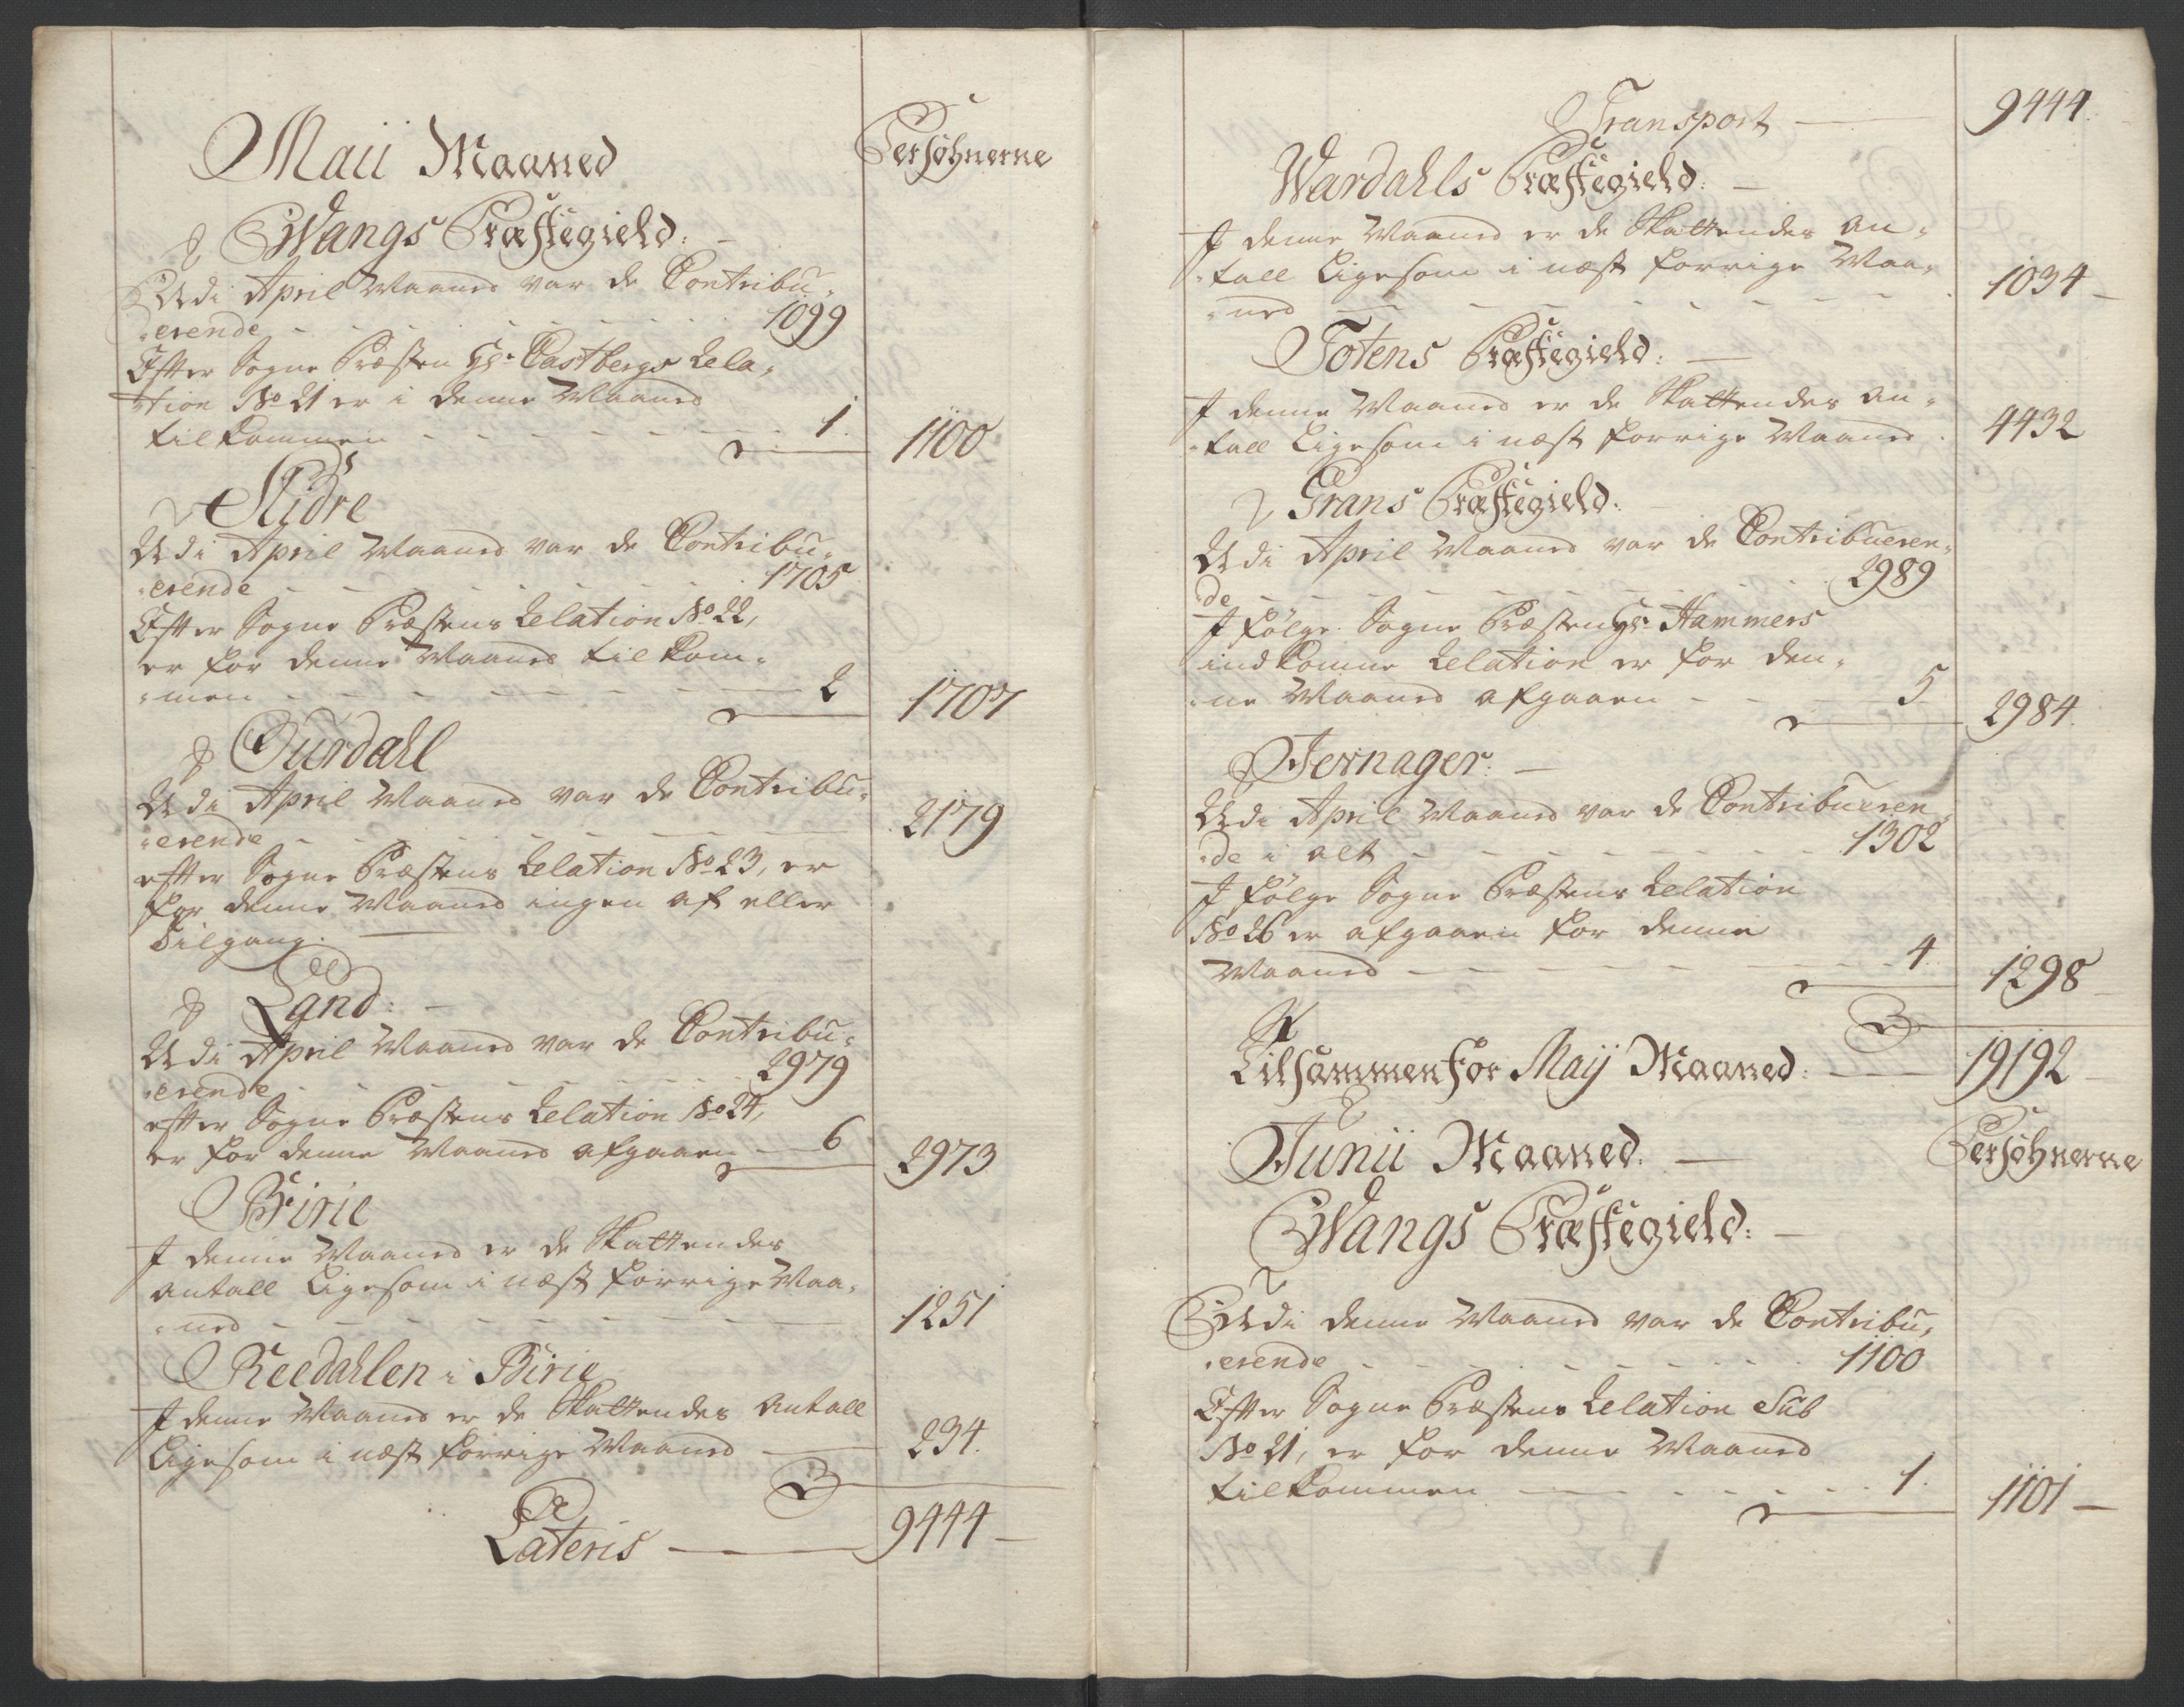 Persøhnerne
Maii Maaned
Wangs Præstegield:
Udi April Maaned var de Contribu-
erende 1099
Efter Sogne Præsten Hr. Castbergs Rela-
tion No 21 er i denne Maaned
tilkommen 1. 1100
Slidre
Udi April Maaned var de Contribu-
erende 1705
Efter Sogne Præstens Relation No 22,
er for denne Maaned tilkom-
men 2 1707
Ourdahl
Udi April Maaned var de Contribu-
erende 2179
efter Sogne Præstens Relation No 23, er
for denne Maaned ingen af eller
Tilgang.
Land:
Udi April Maaned var de Contribu-
erende 2979
efter Sogne Præstens Relation No 24,
er for denne Maaned afgaaen 6 2973
Birie
I denne Maaned er de Skattendes
Antall Ligesom i næst forrige Maa-
ned 1251
Reedahlen i Birie
I denne Maaned er de Skattendes Antall
Ligesom i næst forrige Maaned 234.
Lateris 9444
Transport 9444.
Wardahls Præstegield:
I denne Maaned er de Skattendes An-
tall Ligesom i næst forrige Maa-
ned 1034
Totens Præstegield:
I denne Maaned er de Skattendes An-
tall Ligesom i næst forrige Maaned. 4432
Grans Præstegield:
Udi April Maaned var de Contribueren-
de 2989
I følge Sogne Præsten Hr. Hammers
indkomne Relation er for den-
ne Maaned afgaaen 5 2984.
Jevnager:
Udi April Maaned var de Contribueren-
de i alt 1302
I følge Sogne Præstens Relation
No 26 er afgaaen for denne
Maaned 4. 1298
Tilsammen for Maij Maaned: 19192
Junii Maaned. Persøhnerne
Wangs Præstegield:
Udi denne Maaned var de Contribu-
erende 1100
Efter Sogne Præstens Relation Sub
No 21, er for denne Maaned
tilkommen 1. 1101